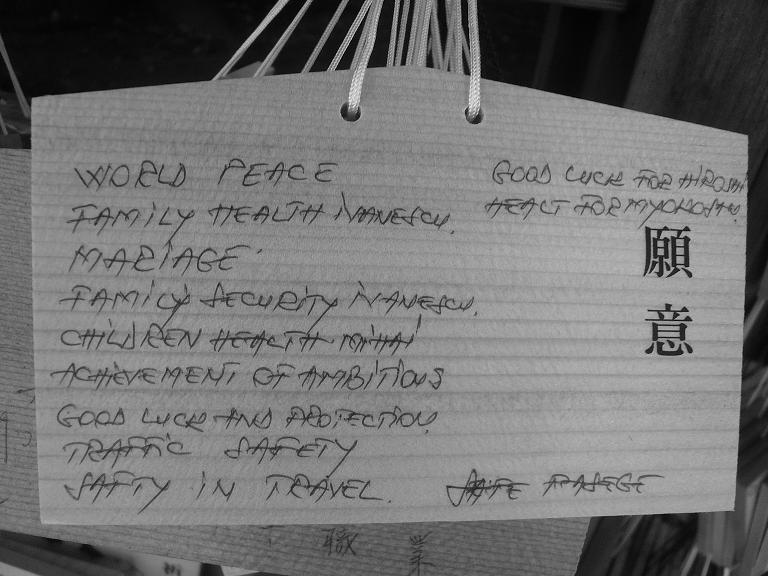 WORLD PEACE
FAMILY HEALTH IVANESCU.
MARIAGE
FAMILY SECURITY IVANESCU.
CHILDREN HEALTH MIHAI
ACHIEVEMENT OF AMBITIOUS
GOOD LUCK AND PROTECTION
TRAFFIC SAFETY
SAFTY IN TRAVEL.
SAIFE PASEGE
GOOD LUCK FOR HIROSHI
HEALT FOR MYOKOSHU.
願意
職業